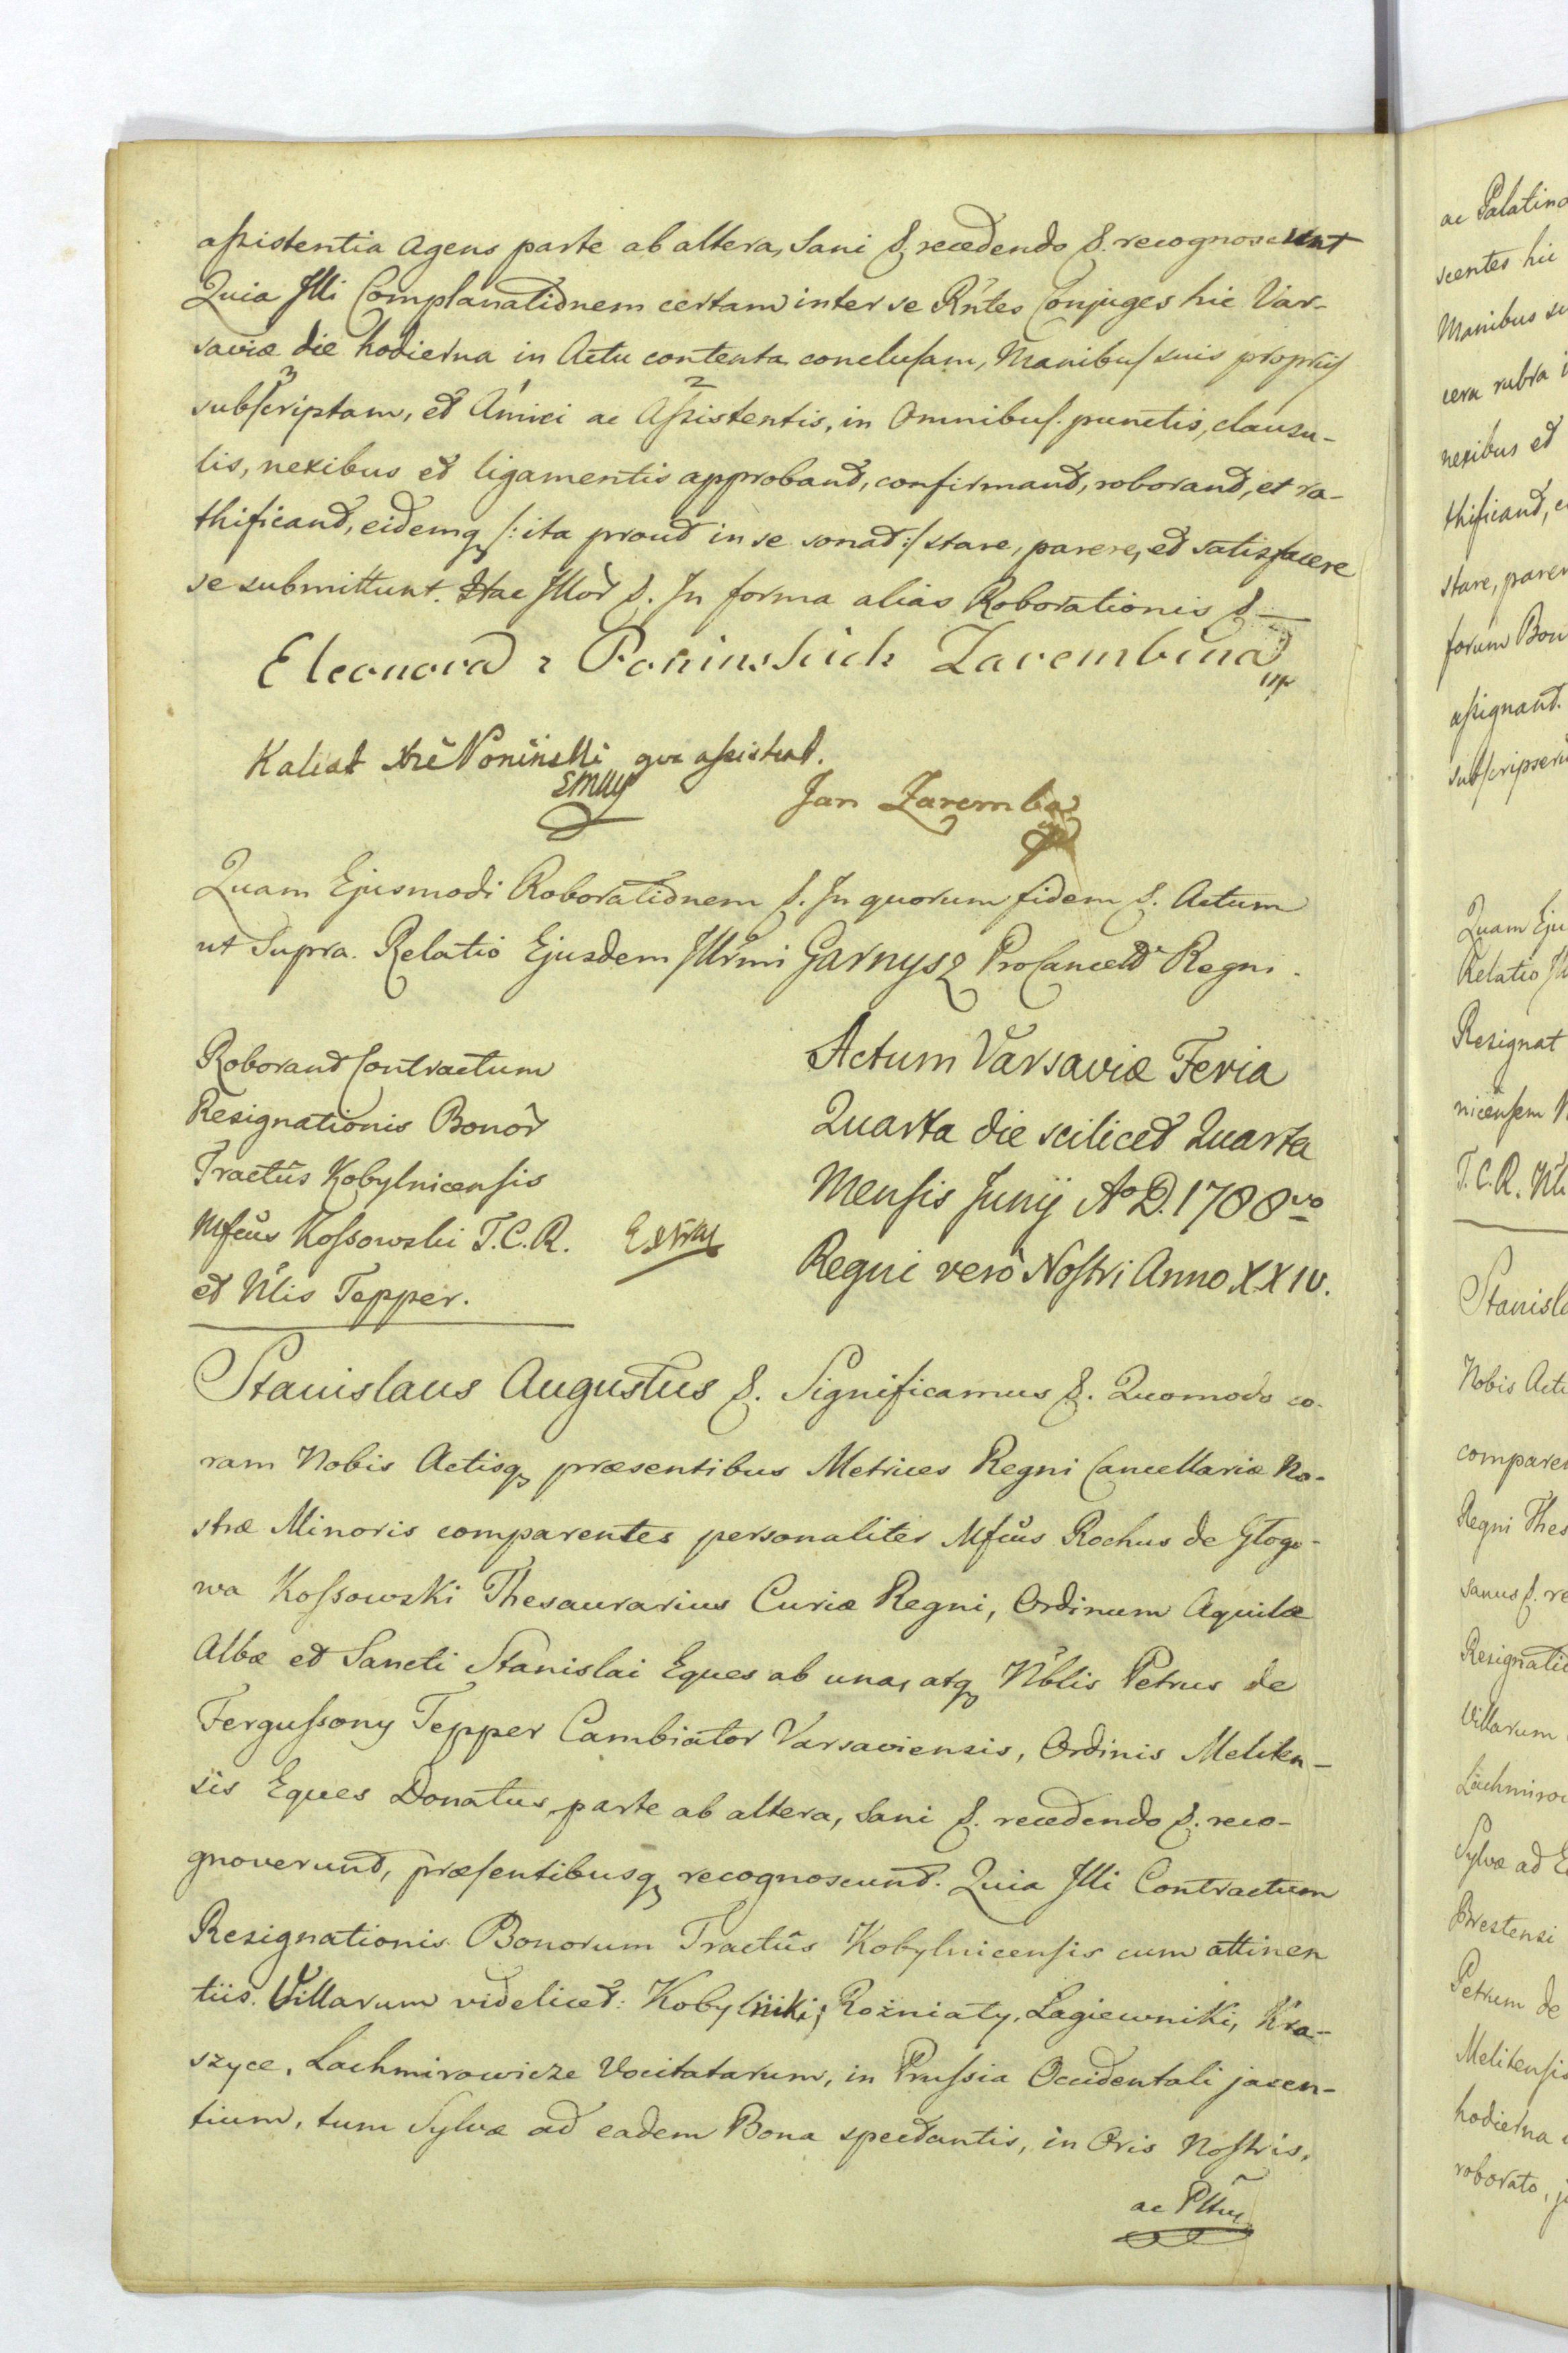 aſsistentia agens parte ab altera, Sani &. recedendo &. recognoscunt
Quia Illi Complanationem certam inter se Rntes Conjuges hic Var-
saviæ die hodierna in Actu contenta concluſam, Manibuſ suis proprijſ
subſcriptam, et Amici ac Aſsistentis, in Omnibuſ. punctis, clausu-
lis, nexibus et ligamentis approband, confirmand, roborand, et ra-
thificand, eidemq /: ita prout in se sonat :/ stare, parere, et satisfacere
se submittunt. Hac Illor &. In forma alias Roborationis &
Eleonora z Poninskich Zarembina
Jan Zaremba
Quam Ejusmodi Roborationem &. In quorum fidem &. Actum
ut Supra. Relatio Ejusdem Illrmi Garnysz ProCancell Regni.
Roborand Contractum
Resignationis Bonor
Tractûs Kobylnicenſis
Mfcus Koſsowski T.C.R.
et Nlis Tepper.
Actum Varsaviæ Feria
Quarta die scilicet Quarta
Menſis Junij Ao D. 1788vo
Regni vero Noſtri Anno XXIV.
Stanislaus Augustus &. Significamus &. Quomodo co-
ram Nobis Actisq præsentibus Metrices Regni Cancellariæ No-
stræ Minoris comparentes personaliter Mfcus Rochus de Głogo-
wa Koſsowski Thesaurarius Curiæ Regni, Ordinum Aquilæ
Albæ et Sancti Stanislai Eques ab una, atq Nblis Petrus de
Ferguſsony Tepper Cambiator Varsaviensis, Ordinis Meliten-
sis Eques Donatus parte ab altera, Sani &. recedendo &. reco-
gnoverunt, præſentibusq recognoscunt. Quia Illi Contractum
Resignationis Bonorum Tractûs Kobylnicenſis cum attinen
tiis. Villarum videlicet: Kobylniki, Rożniaty, Łagiewniki, Kra-
szyce, Lachmirowicze Vocitatarum, in Pruſsia Occidentali jacen-
tium, tum Sylvæ ad eadem Bona spectantis, in Oris Noſtris,
ac Plttu
ac Palatino
scentes hic
Manibus su
cera rubra i
nexibus et
thificand, e
stare, parer
forum Bon
aſsignand.
subſcripseru
Quam Eju
Relatio Il
Resignat
nicenſem
T.C.R.
Stanisla
Nobis Acti
comparen
Regni Thes
sanus &. re
Resignatio
Villarum
Lachmirow
Sylvæ ad E
Brestensi
Petrum de
Melitenſis
hodierna
roborato, j